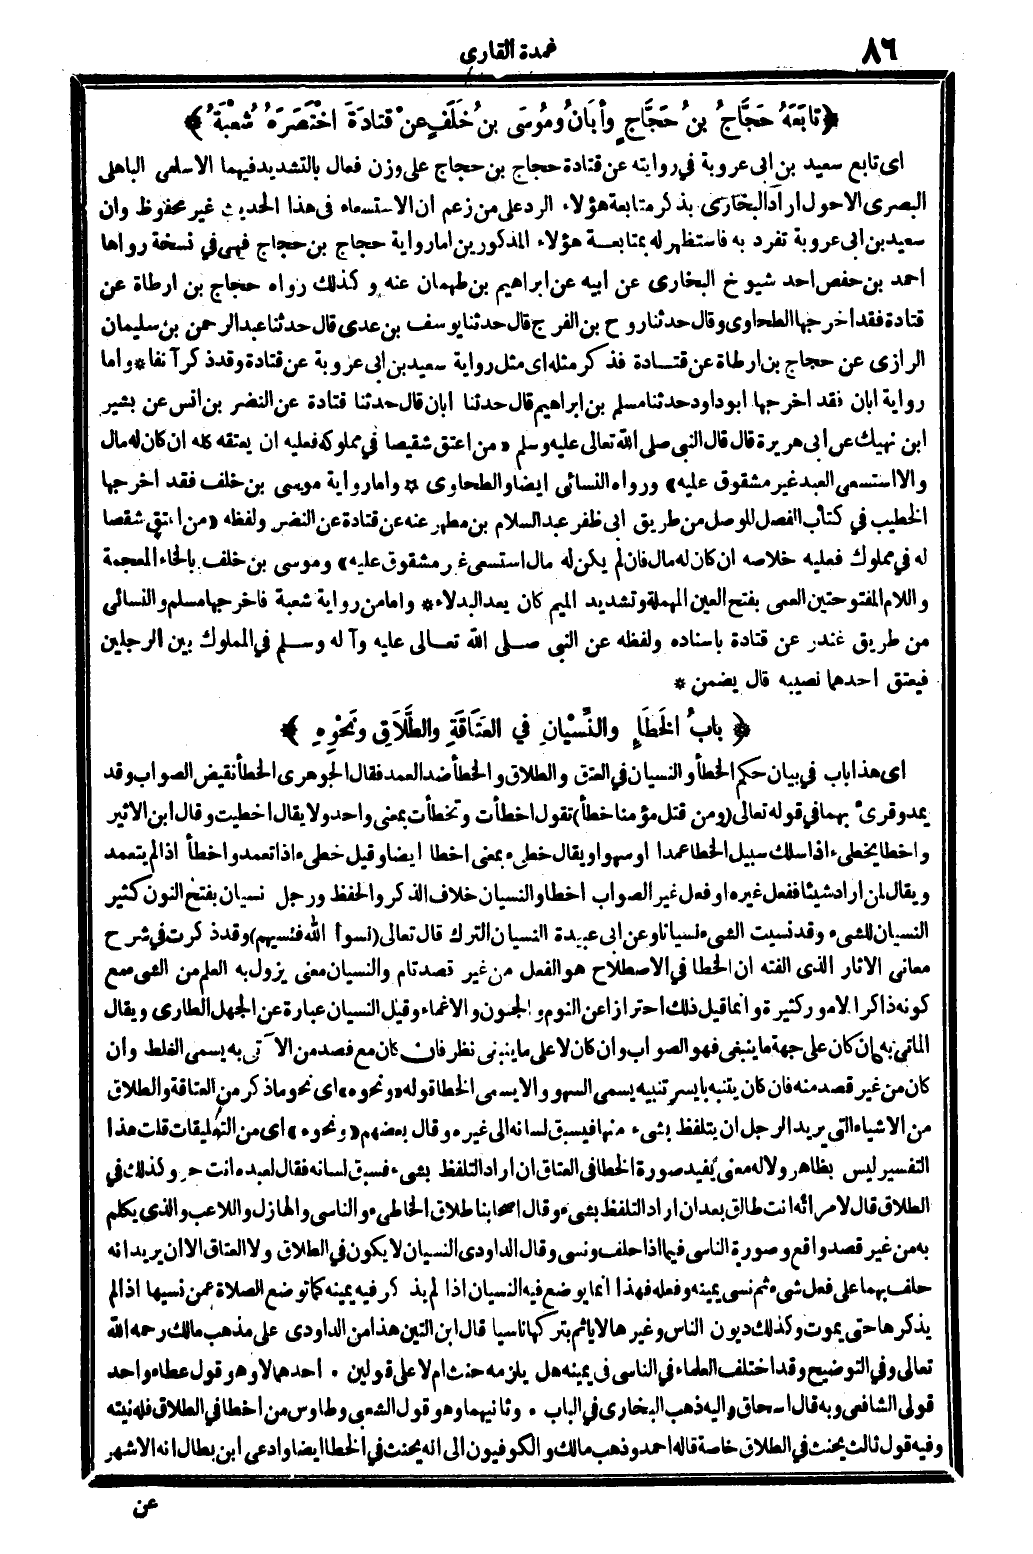 ٨٦
عمدة القارى
﴿ تابَعَهُ حَجَّاجُ بنُ حَجَّاجٍ وأبَانُ ومُوسَى بنُ خَلَفٍ عنْ قتادَةَ اخْتَصَرَهُ شُعْبَةُ ﴾
اى تابع سعيد بن ابى عروبة فى روايته عن قتادة حجاج بن حجاج على وزن فعال بالتشديد فيهما الاسلمى الباهلى
البصرى الاحول اراد البخارى بذكر متابعة هؤلاء الرد على من زعم ان الاستسعاء فى هذا الحديث غير محفوظ وان
سعيد بن ابى عروبة تفرد به فاستظهر له بمتابعة هؤلاء المذكورين اما رواية حجاج بن حجاج فهى فى نسخة رواها
احمد بن حفص احد شيوخ البخارى عن ابيه عن ابراهيم بن طهمان عنه وكذلك رواه حجاج بن ارطاة عن
قتادة فقد اخرجها الطحاوى وقال حدثنا روح بن الفرج قال حدثنا يوسف بن عدى قال حدثنا عبد الرحمن بن سليمان
الرازى عن حجاج بن ارطاة عن قتادة فذكر مثله اى مثل رواية سعيد بن ابى عروبة عن قتادة وقد ذكر آنفا * واما
رواية ابان فقد اخرجها ابو داود حدثنا مسلم بن ابراهيم قال حدثنا ابان قال حدثنا قتادة عن النضر بن انس عن بشير
ابن نهيك عن ابى هريرة قال قال النبى صلى الله تعالى عليه وسلم «من اعتق شقيصا فى مملوكه فعليه ان يعتقه كله ان كان له مال
والا استسعى العبد غير مشقوق عليه» ورواه النسائى ايضا والطحاوى * واما رواية موسى بن خلف فقد اخرجها
الخطيب فى كتاب الفصل للوصل من طريق ابى ظفر عبد السلام بن مطهر عنه عن قتادة عن النضر ولفظه «من اعتق شقصا
له فى مملوك فعليه خلاصه ان كان له مال فان لم يكن له مال استسعى غير مشقوق عليه» وموسى بن خلف بالخاء المعجمة
واللام المفتوحتين العمى بفتح العين المهملة وتشديد الميم كان يعد البدلاء * واما من رواية شعبة فاخرجها مسلم والنسائى
من طريق غندر عن قتادة باسناده ولفظه عن النبى صلى الله تعالى عليه وآله وسلم فى المملوك بين الرجلين
فيعتق احدهما نصيبه قال يضمن *
﴿ بابُ الخَطَإِ والنِّسْيانِ في العَتَاقَةِ والطَّلَاقِ ونَحْوِهِ ﴾
اى هذا باب فى بيان حكم الخطأ والنسيان فى العتق والطلاق والخطأ ضد العمد فقال الجوهرى الخطأ نقيض الصواب وقد
يمد وقرئ بهما فى قوله تعالى (ومن قتل مؤمنا خطأ) تقول اخطأت وتخطأت بمعنى واحد ولا يقال اخطيت وقال ابن الاثير
واخطا يخطئ اذا سلك سبيل الخطا عمدا او سهوا ويقال خطئ بمعنى اخطا ايضا وقيل خطئ اذا تعمد واخطأ اذا لم يتعمد
ويقال لمن اراد شيئا ففعل غيره او فعل غير الصواب اخطا والنسيان خلاف الذكر والحفظ ورجل نسيان بفتح النون كثير
النسيان للشىء وقد نسيت الشىء نسيانا وعن ابى عبيدة النسيان الترك قال تعالى (نسوا الله فنسيهم) وقد ذكرت فى شرح
معانى الاثار الذى الفته ان الخطا فى الاصطلاح هو الفعل من غير قصد تام والنسيان معنى يزول به العلم من الشىء مع
كونه ذاكرا لامور كثيرة وانما قيل ذلك احترازا عن النوم والجنون والاغماء وقيل النسيان عبارة عن الجهل الطارى ويقال
الماتى به ان كان على جهة ما ينبغى فهو الصواب وان كان لا على ما ينبغى نظر فان كان مع قصد من الآتى به يسمى الغلط وان
كان من غير قصد منه فان كان يتنبه بايسر تنبيه يسمى السهو والا يسمى الخطا قوله «ونحوه» اى نحو ما ذكر من العتاقة والطلاق
من الاشياء التى يريد الرجل ان يتلفظ بشىء منها فيسبق لسانه الى غيره وقال بعضهم «ونحوه» اى من التعليقات قلت هذا
التفسير ليس بظاهر ولا له معنى يفيد صورة الخطا فى العتاق ان اراد التلفظ بشىء فسبق لسانه فقال لعبده انت حر وكذلك فى
الطلاق قال لامرأته انت طالق بعد ان اراد التلفظ بشىء وقال اصحابنا طلاق الخاطىء والناسى والهازل واللاعب والذى يكلم
به من غير قصد واقع وصورة الناسى فيما اذا حلف ونسى وقال الداودى النسيان لا يكون فى الطلاق ولا العتاق الا ان يريد انه
حلف بهما على فعل شىء ثم نسى يمينه وفعله فهذا انما يوضع فيه النسيان اذا لم يذكر فيه يمينه كما توضع الصلاة عمن نسيها اذا لم
يذكرها حتى يموت وكذلك ديون الناس وغيرها لا ياثم بتركها ناسيا قال ابن التين هذا من الداودى على مذهب مالك رحمه الله
تعالى وفى التوضيح وقد اختلف العلماء فى الناسى فى يمينه هل يلزمه حنث ام لا على قولين . احدهما لا وهو قول عطاء واحد
قولى الشافعى وبه قال اسحاق واليه ذهب البخارى فى الباب . وثانيهما وهو قول الشعبى وطاوس من اخطا فى الطلاق فله نيته
وفيه قول ثالث يحنث فى الطلاق خاصة قاله احمد وذهب مالك والكوفيون الى انه يحنث فى الخطا ايضا وادعى ابن بطال انه الاشهر
عن